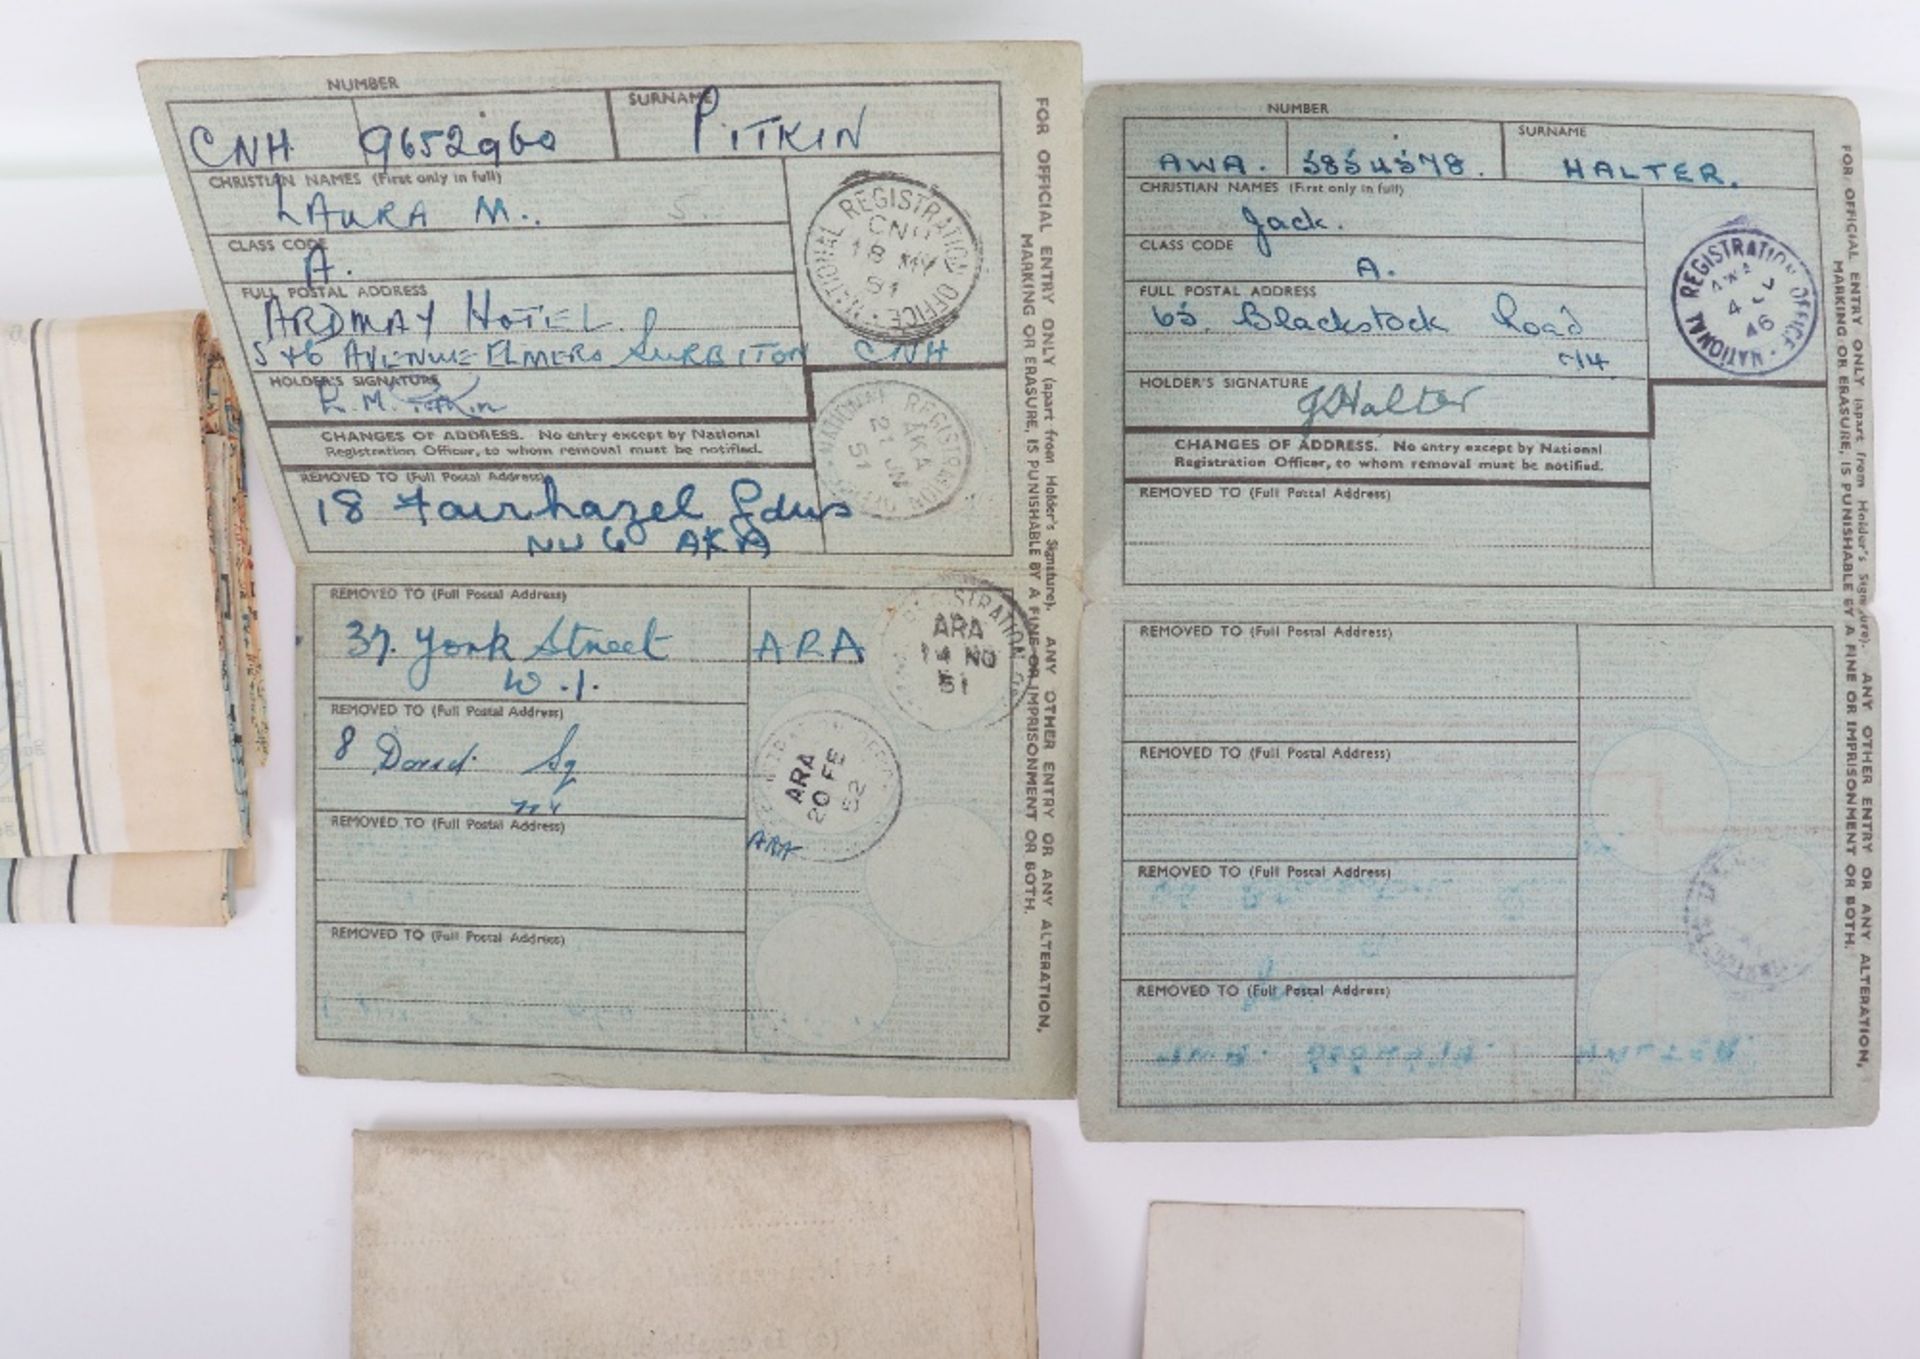 NUMBER
SURNAME
CNH 9652960 PITKIN
CHRISTIAN NAMES (First only in full)
LAURA M.
CLASS CODE
A.
FULL POSTAL ADDRESS
ARDMAY HOTEL
5+6 AVENUE ELMERS SURBITON CNH
HOLDER'S SIGNATURE
L. M. Pitkin
CHANGES OF ADDRESS. No entry except by National
Registration Officer, to whom removal must be notified.
REMOVED TO (Full Postal Address)
18 Fairhazel Gdns
NW6 AKA
NATIONAL REGISTRATION OFFICE
CNH
18 MY
51
NATIONAL REGISTRATION OFFICE
AKA
21 JN
51
REMOVED TO (Full Postal Address)
37. York Street ARA
W.1.
REGISTRATION
ARA
14 NO
51
REMOVED TO (Full Postal Address)
8 Sq
ARA
20 FE
52
ARA
REMOVED TO (Full Postal Address)
REMOVED TO (Full Postal Address)
FOR OFFICIAL ENTRY ONLY (apart from Holder's Signature). ANY OTHER ENTRY OR ANY ALTERATION,
MARKING OR ERASURE, IS PUNISHABLE BY A FINE OR IMPRISONMENT OR BOTH.
NUMBER
SURNAME
AWA. 5854578. HALTER.
CHRISTIAN NAMES (First only in full)
Jack.
CLASS CODE
A.
FULL POSTAL ADDRESS
65, Blackstock Road
N4
HOLDER'S SIGNATURE
J Halter
NATIONAL REGISTRATION OFFICE
4
46
CHANGES OF ADDRESS. No entry except by National
Registration Officer, to whom removal must be notified.
REMOVED TO (Full Postal Address)
REMOVED TO (Full Postal Address)
REMOVED TO (Full Postal Address)
REMOVED TO (Full Postal Address)
REMOVED TO (Full Postal Address)
FOR OFFICIAL ENTRY ONLY (apart from Holder's Signature). ANY OTHER ENTRY OR ANY ALTERATION,
MARKING OR ERASURE, IS PUNISHABLE BY A FINE OR IMPRISONMENT OR BOTH.